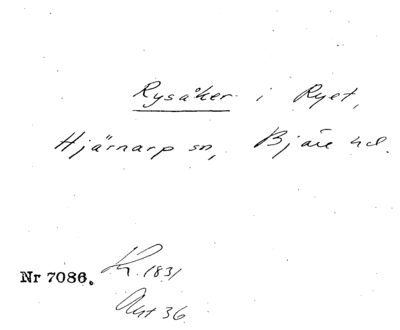 Rysåker i Ryet,
Hjärnarp sn, Bjäre hd.
Nr 7086.
1831
36